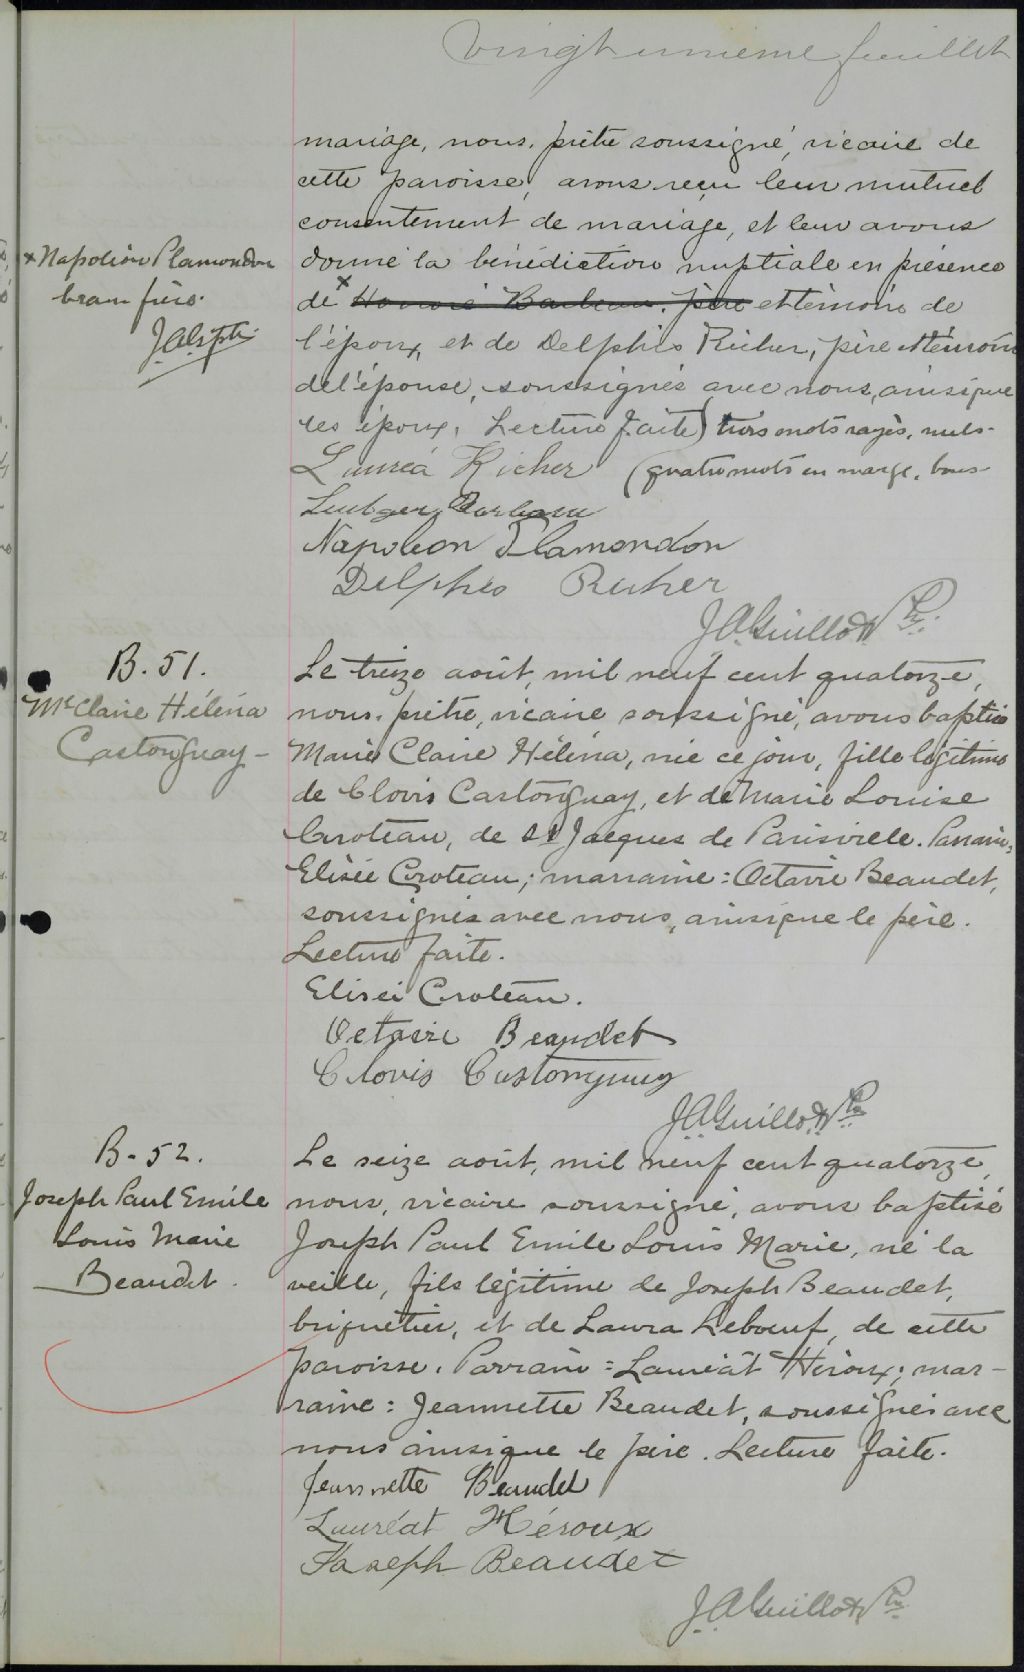 Vingt unième feuillet
mariage, nous, prêtre soussigné, vicaire de
cette paroisse, avons reçu leur mutuel
consentement de mariage, et leur avons
donné la bénédiction nuptiale en présence
de x Honoré Barbeau, père et témoin de
l'époux, et de Delphis Richer, père et témoin
de l'épouse, soussignés avec nous, ainsi que
les époux. Lecture faite) trois mots rayés, nuls.
(quatre mots en marge, bons
x Napoléon Plamondon
beau frère.
J.A.G. ptre
Lauréa Richer
Ludger Barbeau
Napoleon Plamondon
Delphis Richer
J.A. Guillot Ptr.
B. 51.
Me Claire Héléna
Castonguay
Le treize août, mil neuf cent quatorze,
nous, prêtre, vicaire soussigné, avons baptisé
Marie Claire Héléna, née ce jour, fille légitime
de Clovis Castonguay, et de Marie Louise
Croteau, de St Jacques de Parisville. Parrain:
Elisée Croteau; marraine: Octavie Beaudet,
soussignés avec nous, ainsi que le père.
Lecture faite.
Eliseé Croteau.
Octavie Beaudet
Clovis Castonguay
J.A. Guillot Ptr.
B - 52.
Joseph Paul Emile
Louis Marie
Beaudet.
Le seize août, mil neuf cent quatorze,
nous, vicaire soussigné, avons baptisé
Joseph Paul Emile Louis Marie, né la
veille, fils légitime de Joseph Beaudet,
briquetier, et de Laura Leboeuf, de cette
paroisse. Parrain: Lauréat Héroux; mar-
raine: Jeannette Beaudet, soussignés avec
nous ainsi que le père. Lecture faite.
Jeannette Beaudet
Lauréat Héroux
Joseph Beaudet
J.A. Guillot Ptr.